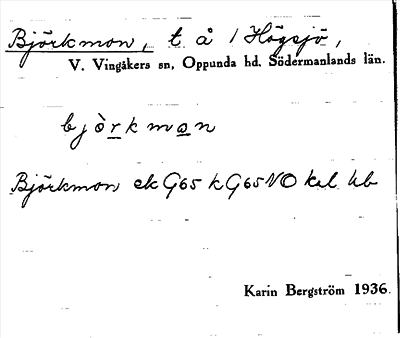 Björkmon, t å / Högsjö,
V. Vingåkers sn, Oppunda hd. Södermanlands län.
bjòrkmon
Björkmon ek G65 k G65NO kal hb
Karin Bergström 1936.